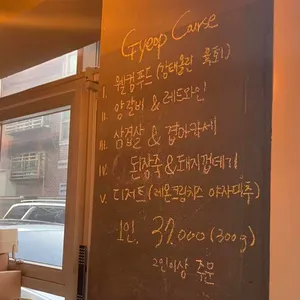 Gyeop Course
I. 웰컴푸드 (감태올린 육회)
II. 양갈비 & 레드와인
III. 삼겹살 &
IV. 된장죽 & 돼지껍데기
V. 디저트 (레몬크림치즈 야자대추)
1인. 37.000 (300g)
2인이상 주문